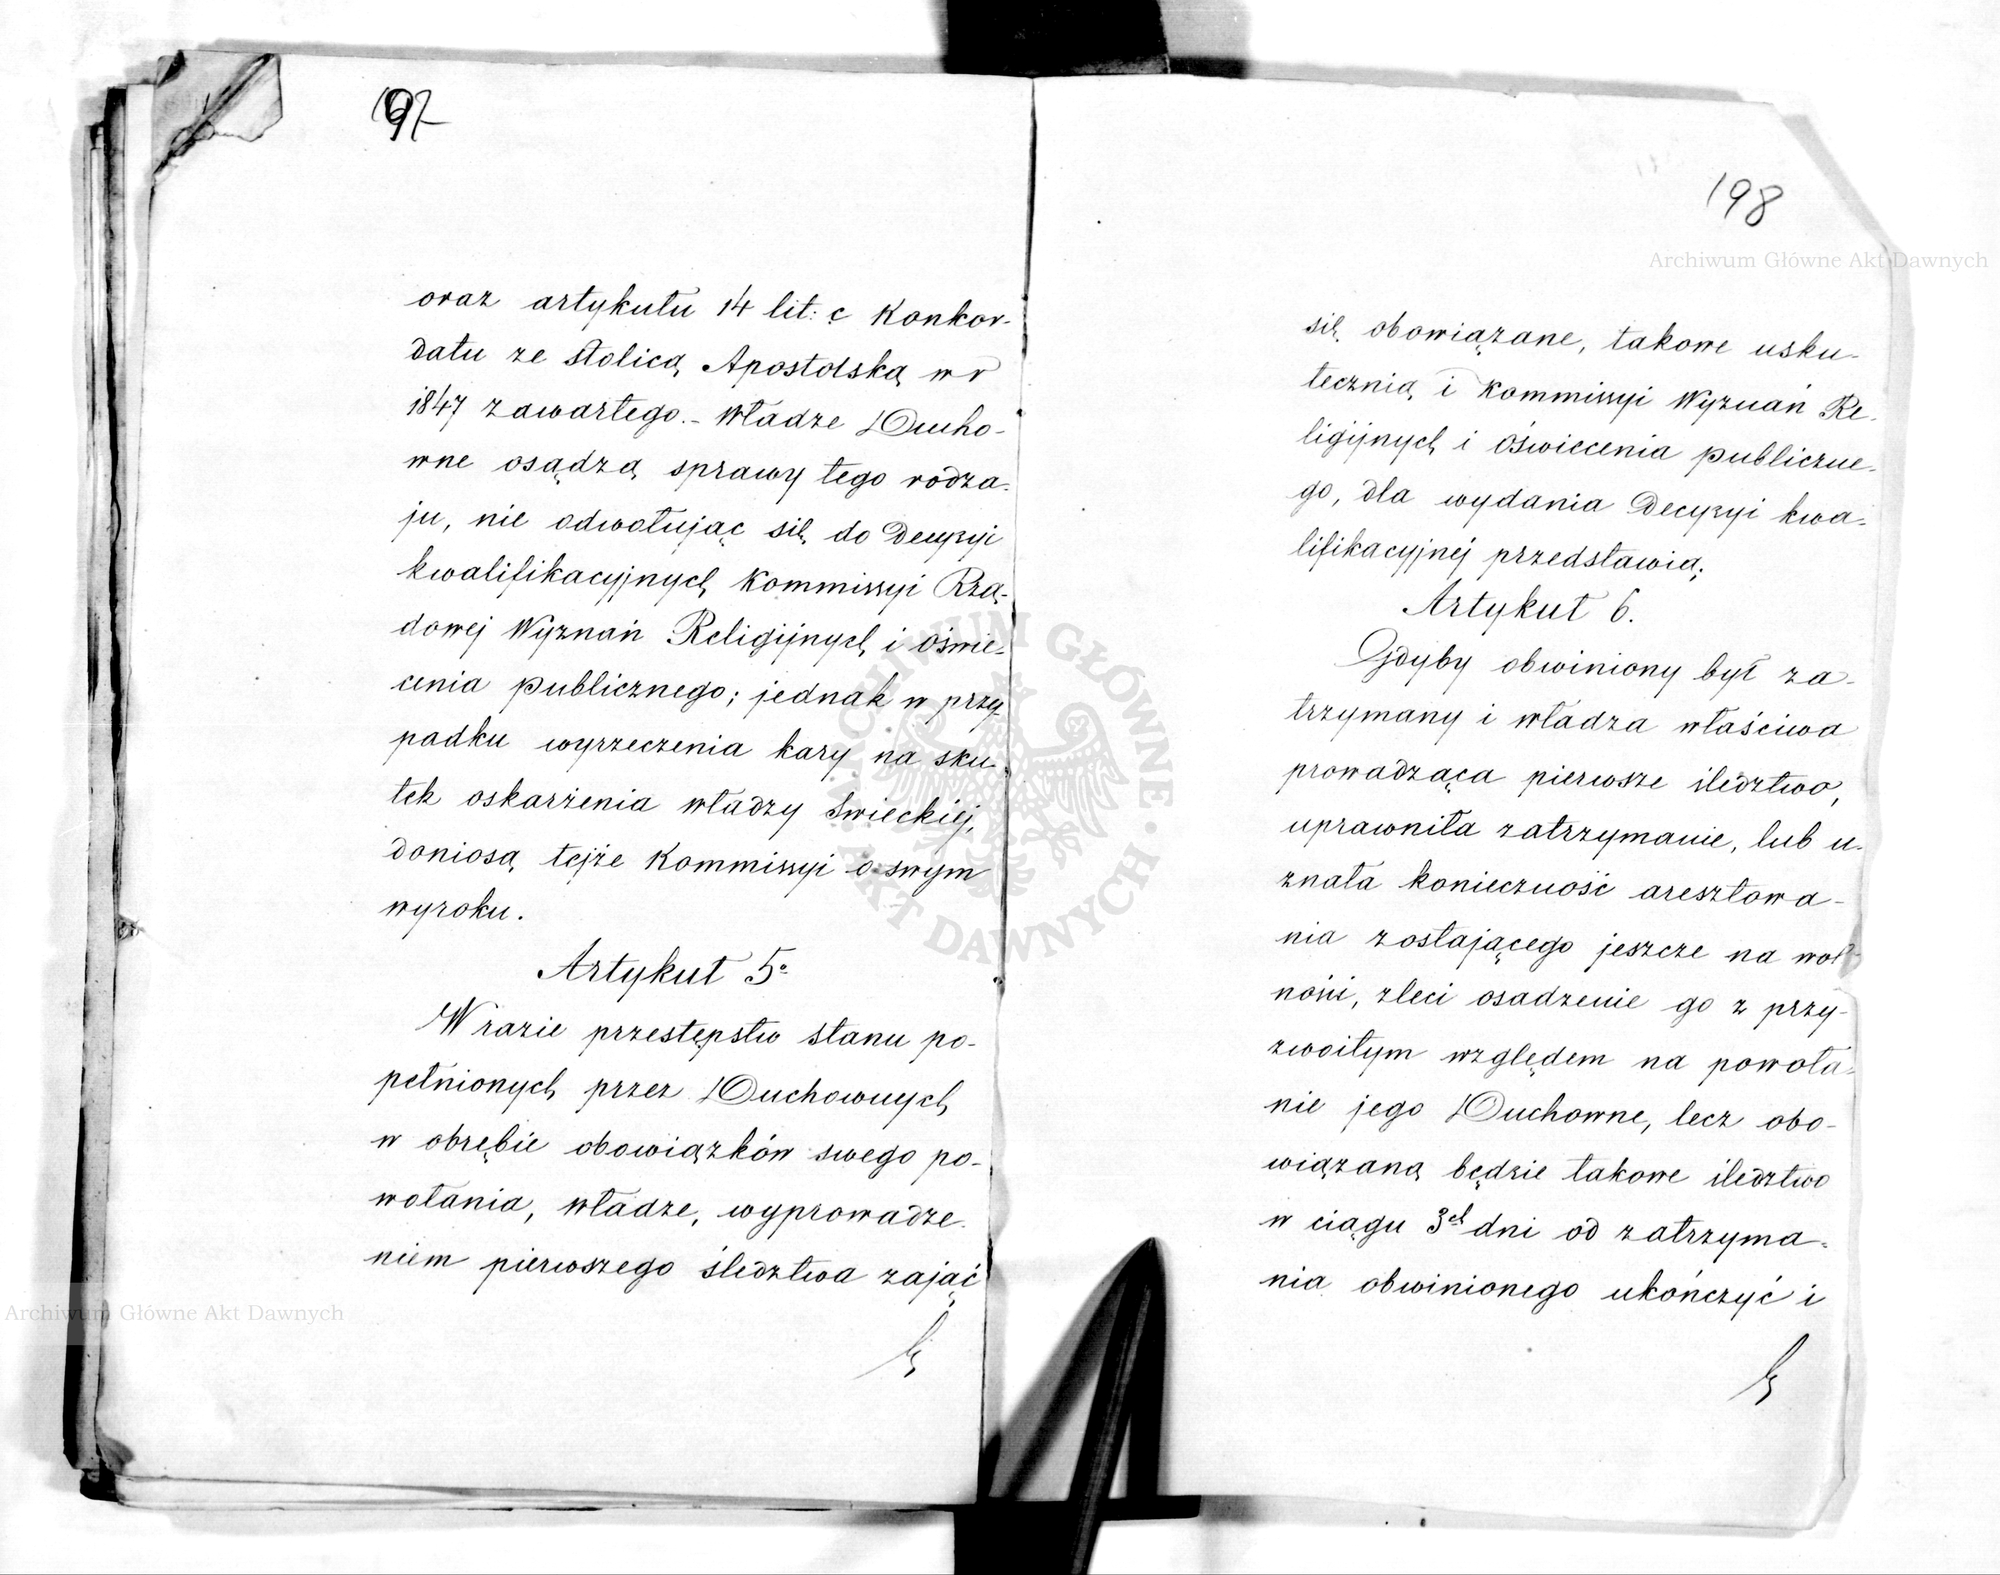 197
oraz artykułu 14 lit: c Konkor-
datu ze Stolicą Apostolską w r
1847 zawartego.- Władze Ducho-
wne osądzą sprawy tego rodza-
ju, nie odwołując się do Decyzyi
kwalifikacyjnych Kommissyi Rzą-
dowej Wyznań Religijnych i Oświe-
cenia publicznego; jednak w przy-
padku wyrzeczenia kary na sku-
tek oskarżenia władzy Swieckiej,
doniosą tejże Kommissyi o swym
wyroku.
Artykuł 5o
W razie przestępstw stanu po-
pełnionych przez Duchownych
w obrębie obowiązków swego po-
wołania, władze, wyprowadze-
niem pierwszego śledztwa zająć
198
się obowiązane, takowe usku-
tecznią i Kommissyi Wyznań Re-
ligijnych i Oświecenia publiczne-
go, dla wydania Decyzyi kwa-
lifikacyjnej przedstawią.
Artykuł 6.
Gdyby obwiniony był za-
trzymany i władza właściwa
prowadząca pierwsze śledztwo,
uprawniła zatrzymanie, lub u-
znała konieczność aresztowa-
nia zostającego jeszcze na wol-
ności, zleci osadzenie go z przy-
zwoitym względem na powoła-
nie jego Duchowne, lecz obo-
wiązaną będzie takowe śledztwo
w ciągu 3ch dni od zatrzyma-
nia obwinionego ukończyć i
Archiwum Główne Akt Dawnych
Archiwum Główne Akt Dawnych
ARCHIWUM GŁÓWNE AKT DAWNYCH